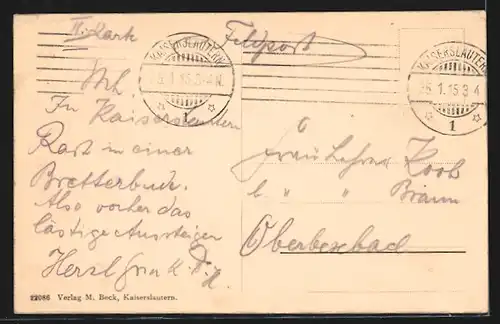 II. Karte
Feldpost
KAISERSLAUTERN
25.1.15.3-4N.
1
KAISERSLAUTERN
25.1.15.3-4
1
In Kaiserslautern
Rast in einer
Bretterbude.
Also vorher das
lästige Aussteigen
Herzl.
Frau Lehrer Koch
b. " " Braun
Oberbexbach
22086 Verlag M. Beck, Kaiserslautern.